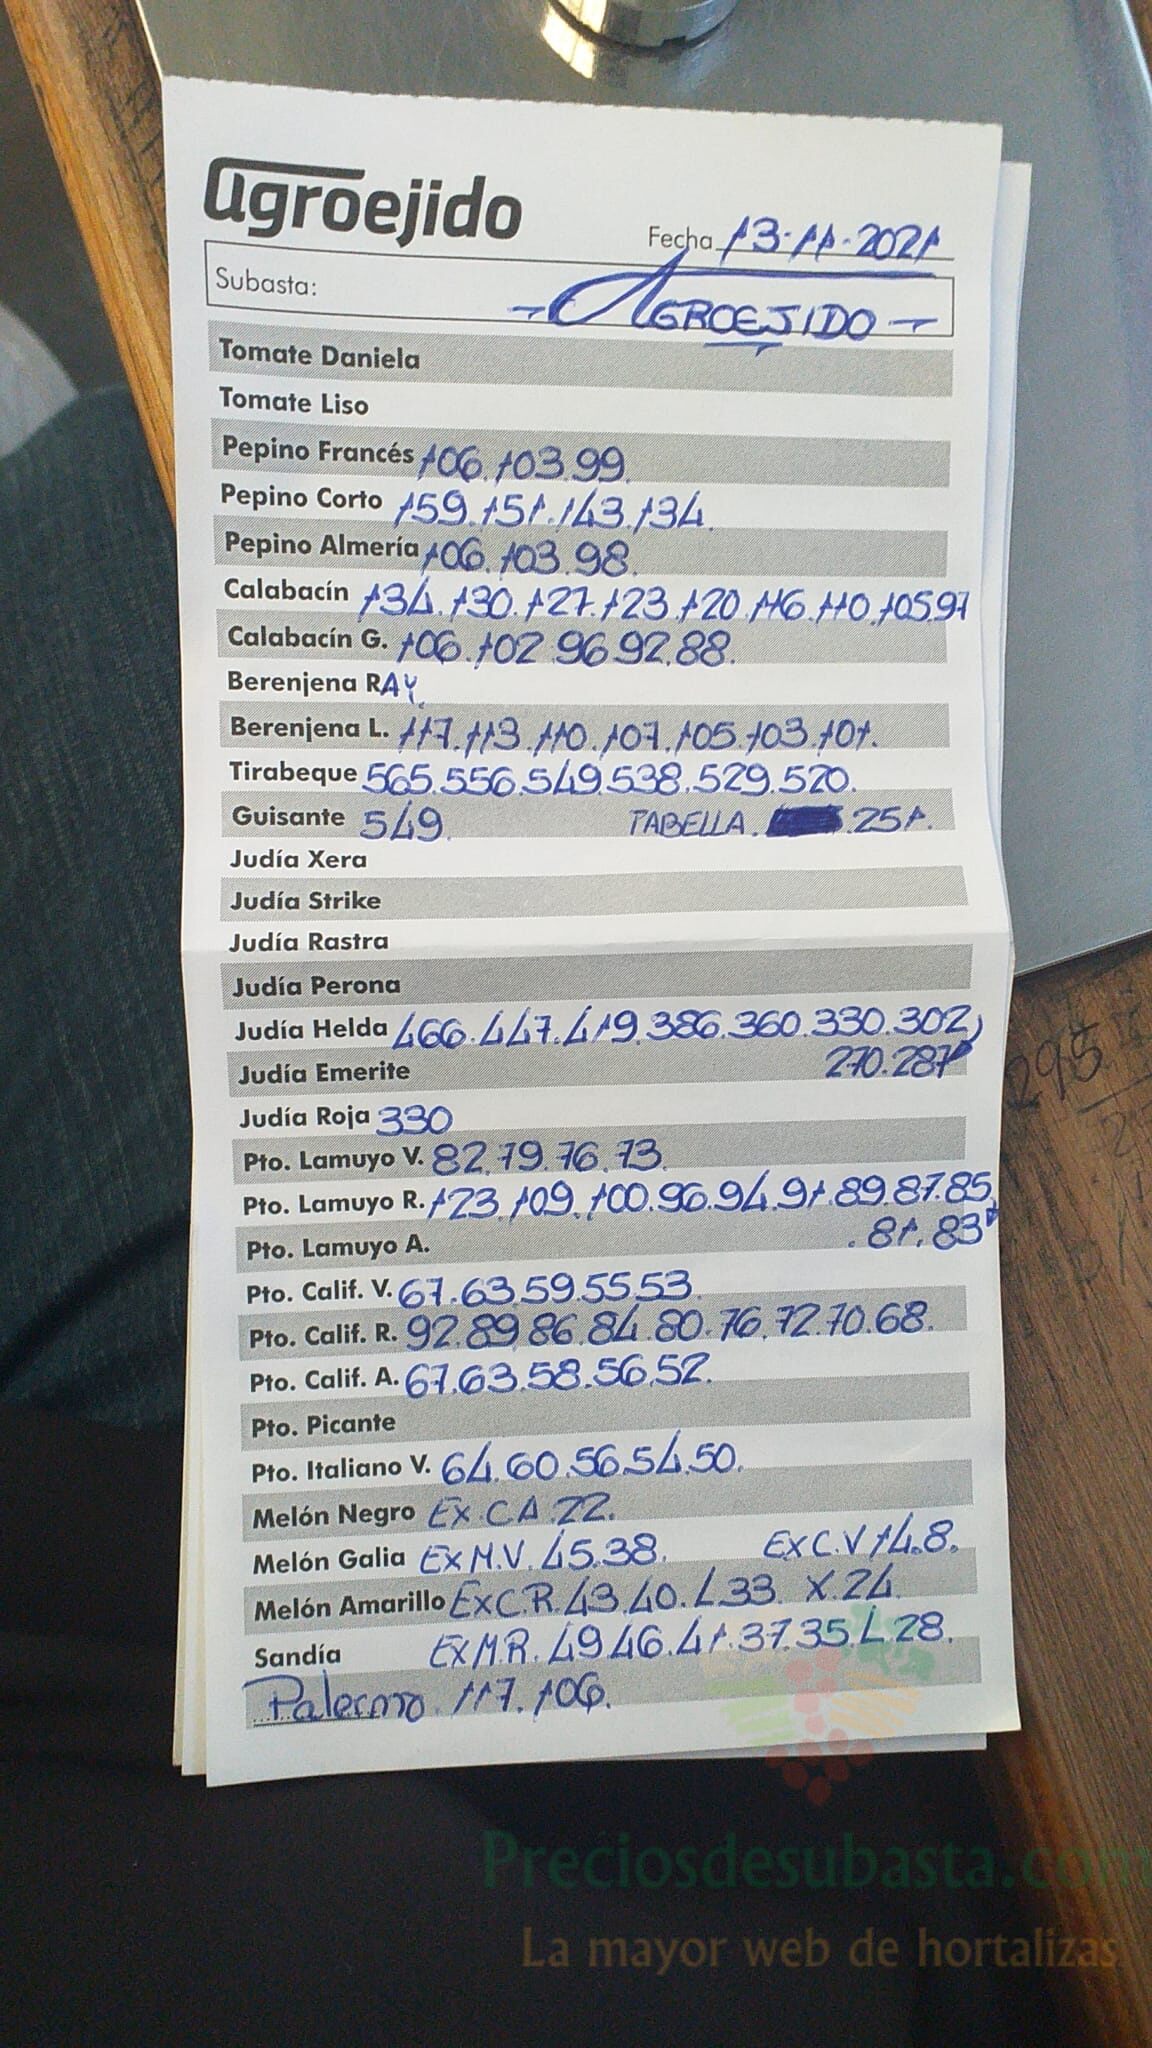 agroejido
Fecha 13-11-2021
Subasta: -AGROEJIDO-
Tomate Daniela
Tomate Liso
Pepino Francés 106.103.99.
Pepino Corto 159.151.143.134.
Pepino Almería 106.103.98.
Calabacín 134.130.127.123.120.116.110.105.97
Calabacín G. 106.102.96.92.88.
Berenjena RAY.
Berenjena L. 117.113.110.107.105.103.101.
Tirabeque 565.556.549.538.529.520.
Guisante 549. TABELLA. .251.
Judía Xera
Judía Strike
Judía Rastra
Judía Perona
Judía Helda 466.447.419.386.360.330.302
Judía Emerite 270.287
Judía Roja 330
Pto. Lamuyo V. 82.79.76.73.
Pto. Lamuyo R. 123.109.100.96.94.91.89.87.85
Pto. Lamuyo A. .81.83
Pto. Calif. V. 67.63.59.55.53
Pto. Calif. R. 92.89.86.84.80.76.72.70.68.
Pto. Calif. A. 67.63.58.56.52.
Pto. Picante
Pto. Italiano V. 64.60.56.54.50.
Melón Negro EX.CA.22.
Melón Galia EXM.V.45.38. EXC.V14.8.
Melón Amarillo EXC.R.43.40.L33. X.24.
Sandía EXM.R.49.46.41.37.35.L.28.
Palermo.117.106.
295
Preciosdesubasta.com
La mayor web de hortalizas